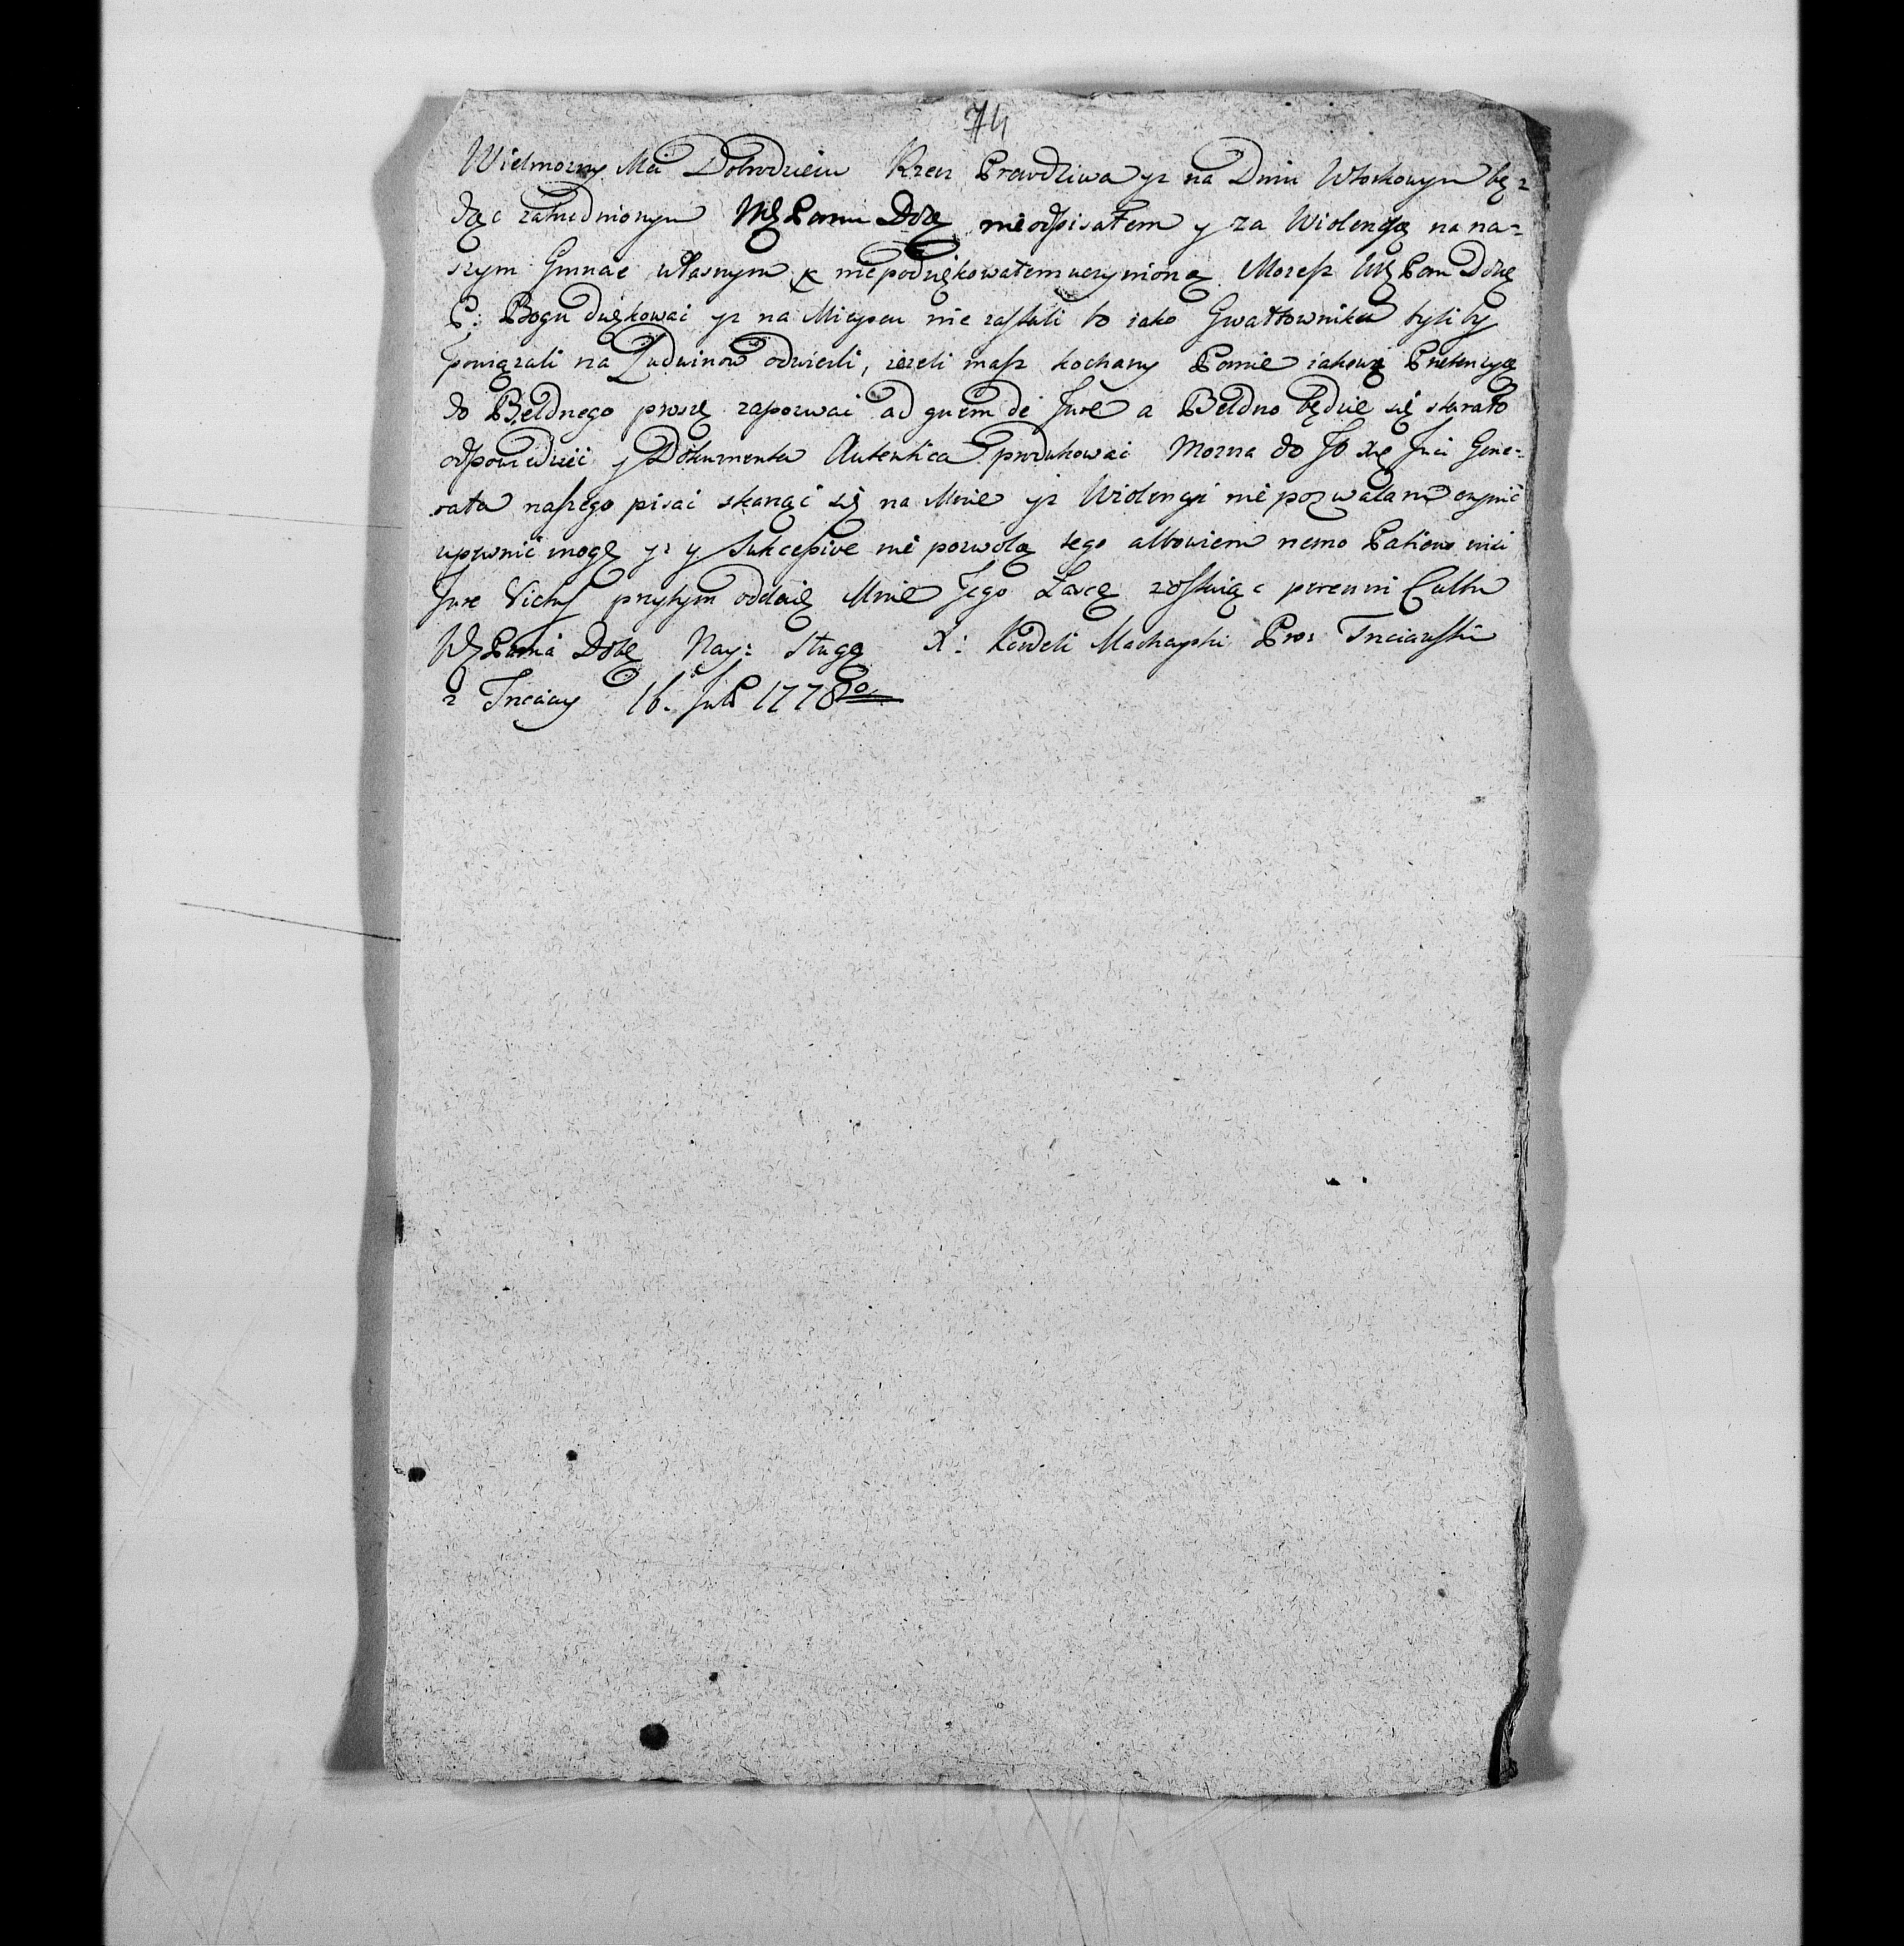 74
Wielmozny Mci Dobrodzieiu Rzecz Prawdziwa yz na Dniu Wtorkowym bę=
dąc zatrudnionym WPanu Dobę nieodpisałem y za Wiolencyą na na=
szym Gruncie własnym niepodziękowałem uczynioną Mozesz WPan Dobę
P: Bogu dziękowac yz na Mieyscu nie zastali bo iako Gwałtownika byliby
powiązali na Ludwinow odwiezli, iezeli masz kochany Panie iakową Pretensyą
do Bełdnego proszę zapozwac ad quem de Jure a Bełdno będzie się starało
odpowiedziec y Dokumenta Autentica produkowac Mozna do JO Xię Jmci Gene=
rała naszego pisac skarząc się na Mnie yz Wiolencyi nie pozwalam czynic
upewnic mogę yz y Sukcessive nie pozwolę tego albowiem nemo Patiens nisi
Jure Victus przytym oddaię Mnie Jego Łascę zostaiąc perenni Cultu
WPana Dobę Nay: Sługą X: Karol Machayski Pro:
z 16. Julii 1778